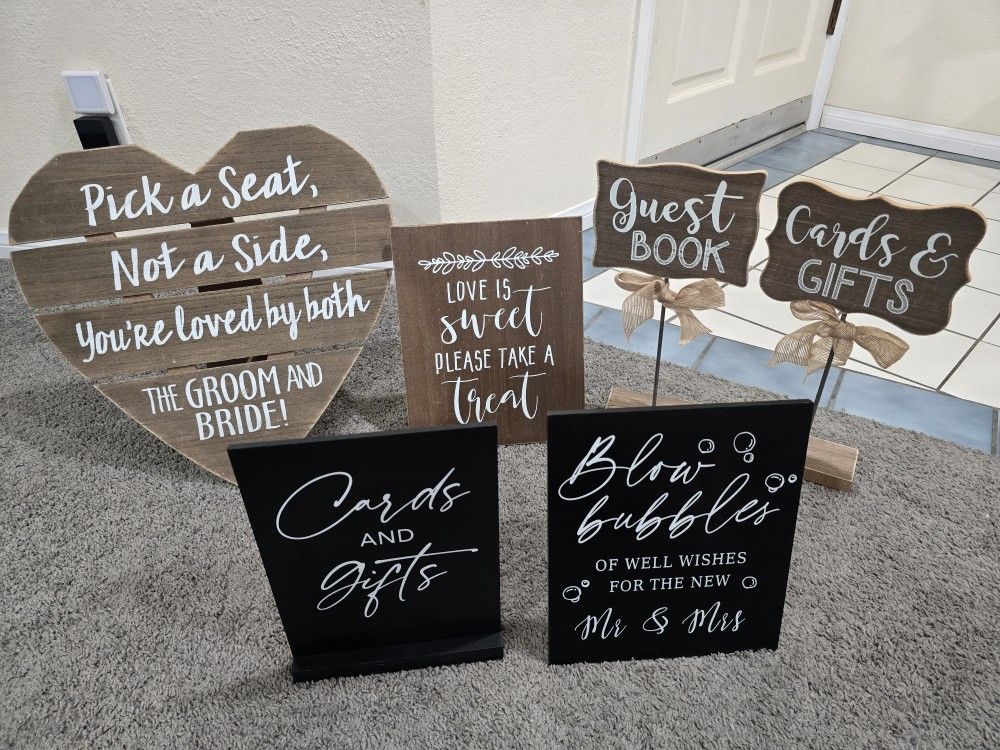 Pick a Seat,
Not a Side,
You're loved by both
THE GROOM AND
BRIDE!
LOVE IS
sweet
PLEASE TAKE A
treat
Guest
BOOK
Cards &
GIFTS
Cards
AND
gifts
Blow
bubbles
OF WELL WISHES
FOR THE NEW
Mr & Mrs